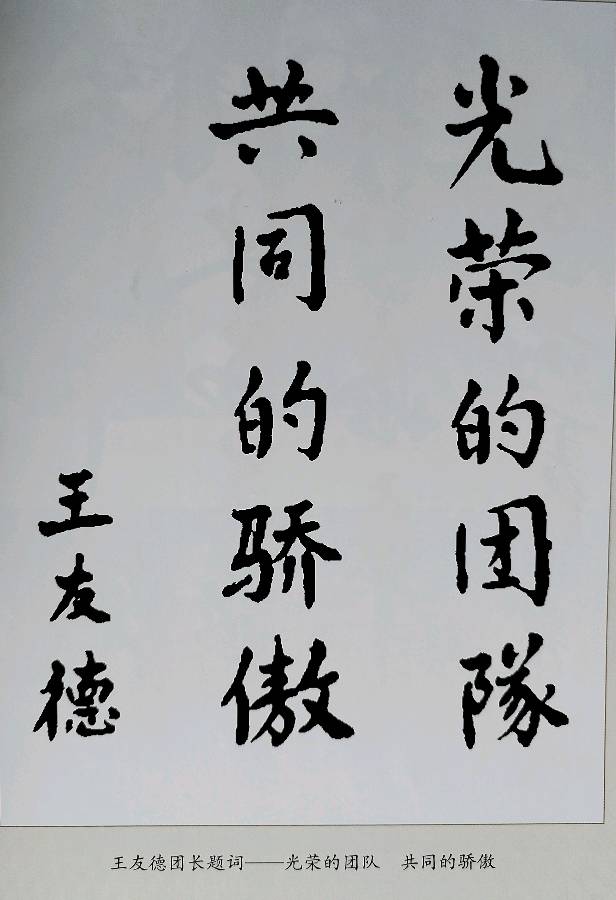 光荣的团隊
共同的骄傲
王友德
王友德团长题词——光荣的团队　共同的骄傲